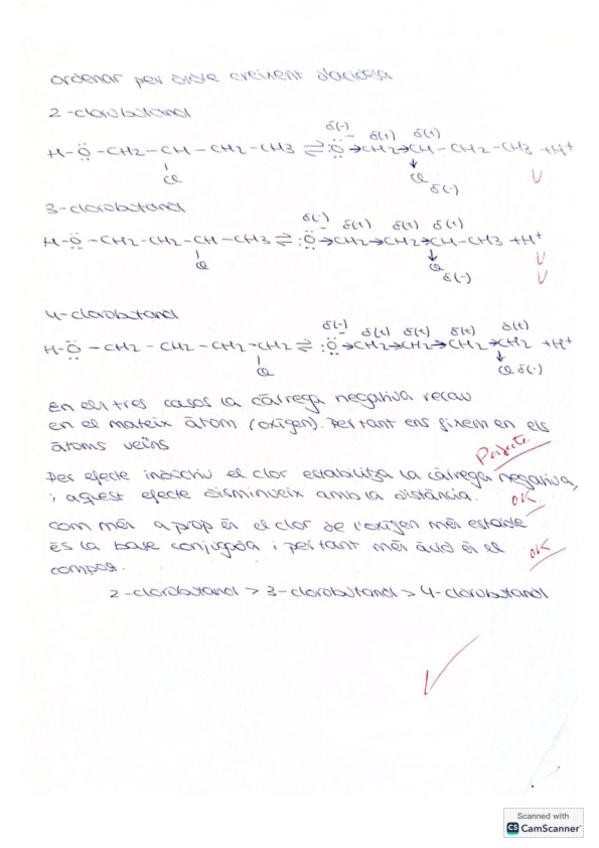 ordenar per ordre creixent d'acidesa
2-clorobutanol
δ(-) δ(+) δ(+)
H-Ö-CH2-CH-CH2-CH3 ⇌ :Ö→CH2→CH-CH2-CH3 +H+
Cl Cl δ(-)
3-clorobutanol
δ(-) δ(+) δ(+) δ(+)
H-Ö-CH2-CH2-CH-CH3 ⇌ :Ö→CH2→CH2→CH-CH3 +H+
Cl Cl δ(-)
4-clorobutanol
δ(-) δ(+) δ(+) δ(+) δ(+)
H-Ö-CH2-CH2-CH2-CH2 ⇌ :Ö→CH2→CH2→CH2→CH2 +H+
Cl Cl δ(-)
En els tres casos la càrrega negativa recau
en el mateix àtom (oxigen). Per tant ens fixem en els
àtoms veïns
Perfecte
Per efecte inductiu el clor estabilitza la càrrega negativa,
i aquest efecte disminueix amb la distància. OK
Com més a prop és el clor de l'oxigen més estable
és la base conjugada i per tant més àcid és el OK
compost.
2-clorobutanol > 3-clorobutanol > 4-clorobutanol
Scanned with
CS CamScanner